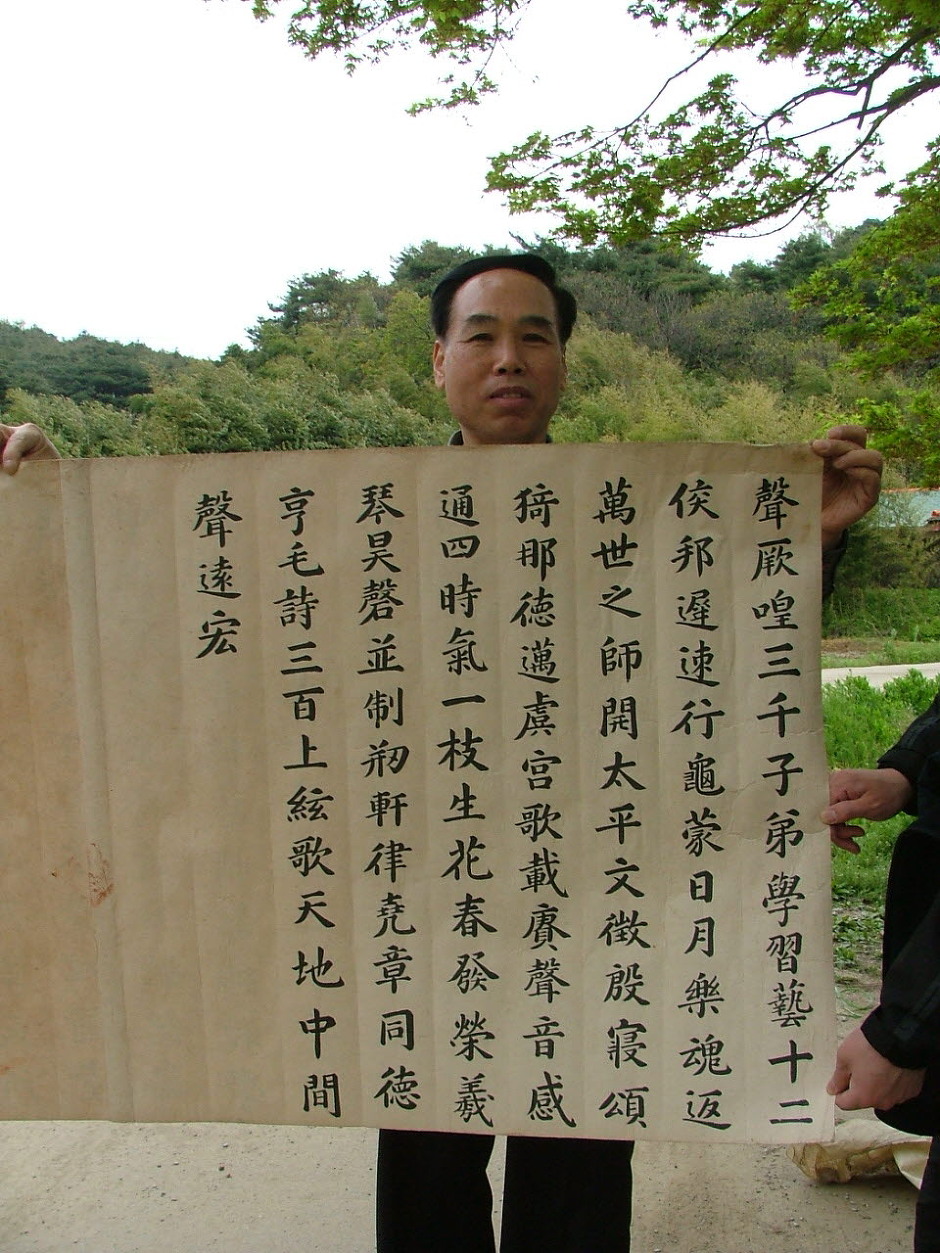 聲厥喤三千子弟學習藝十二
侯邦遲速行龜蒙日月樂魂返
萬世之師開太平文徵殷寢頌
猗那德邁虞宮歌載賡聲音感
通四時氣一枝生花春發榮羲
琴昊磬並制刱軒律堯章同德
亨毛詩三百上絃歌天地中間
聲遠宏